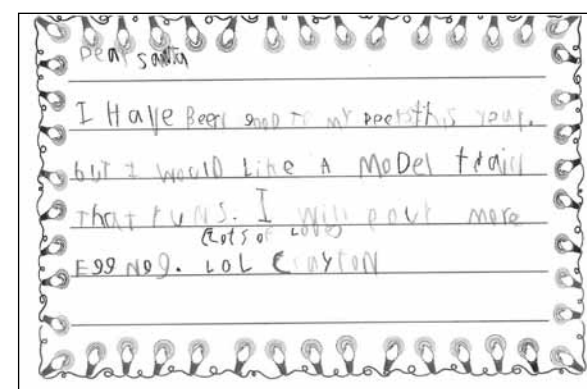 Dear santa
I Have Been good to my peets this year.
but I would Like A MoDel train
That runs. I will pour more
(Lots of Love)
Egg Nog. LOL Clayton